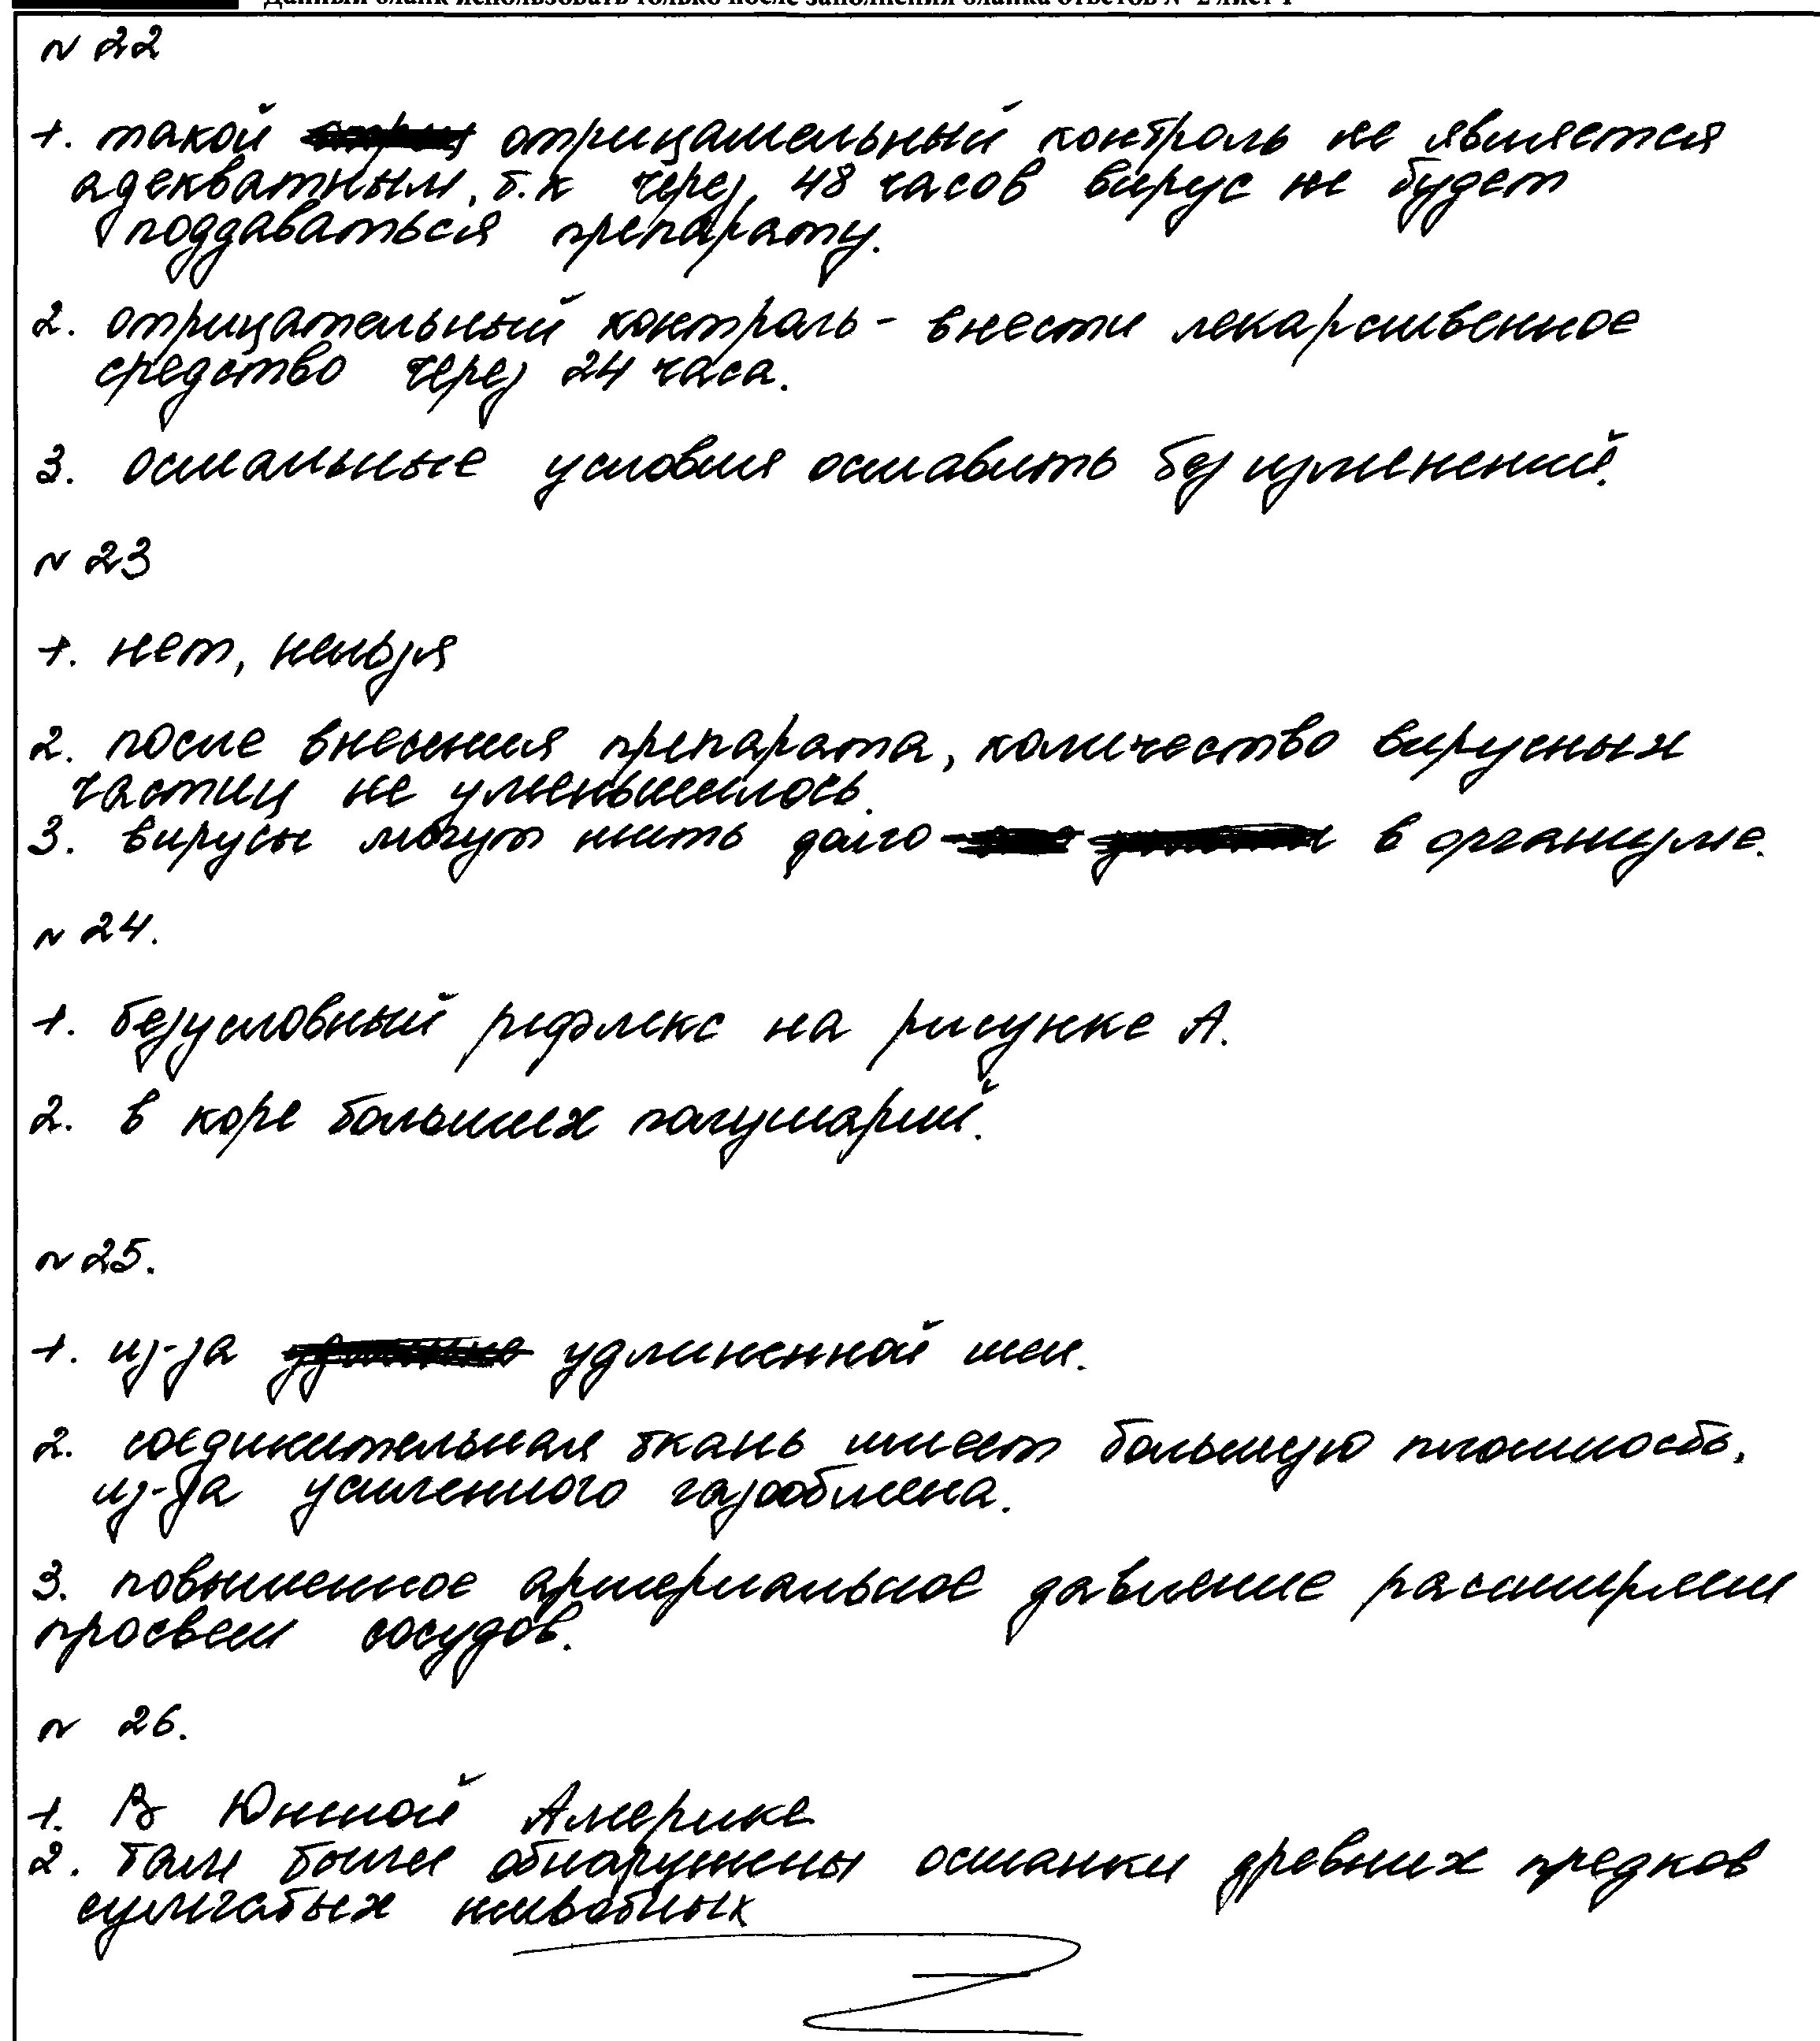 Данный бланк использовать только после заполнения бланка ответов № 2 лист 1
№ 22
1. такой отрицательный контроль не является
адекватным, т.к через 48 часов вирус не будет
поддаваться препарату.
2. отрицательный контроль - внести лекарственное
средство через 24 часа.
3. остальные условия оставить без изменений.
№ 23
1. нет, нельзя
2. после внесения препарата, количество вирусных
частиц не уменьшилось.
3. вирусы могут жить долго в организме.
№ 24.
1. безусловный рефлекс на рисунке А.
2. в коре больших полушарий.
№ 25.
1. из-за удлиненной шеи.
2. соединительная ткань имеет большую плотность,
из-за усиленного газообмена.
3. повышенное артериальное давление расширяет
просвет сосудов.
№ 26.
1. В Южной Америке
2. там были обнаружены останки древних предков
сумчатых животных